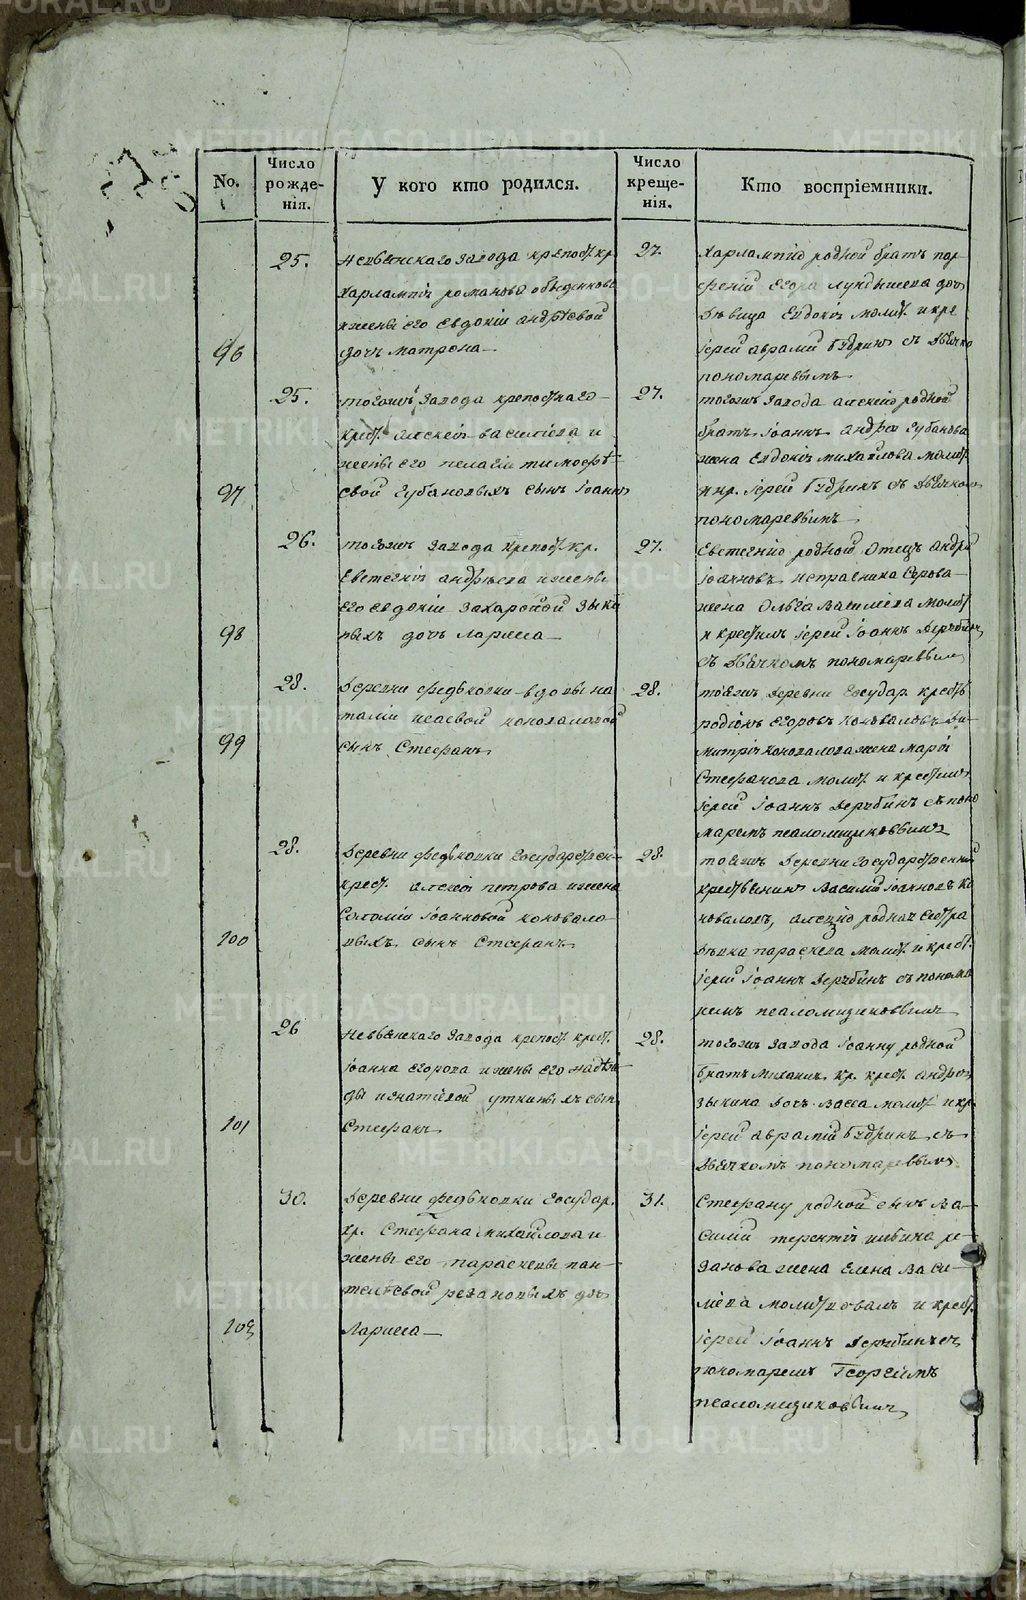 No.
Число рожде-нія.
У кого кто родился.
Число креще-нія.
Кто воспріемники.
96
25.
Невьянскаго завода крепост. кр.
Харлампія романова
жены его Евдокіи андрѣевой
дочь матрона
27.
Харлампію родной братъ пар-
феній Егора дочь
дѣвица Евдокія молит. и кре
Іерей аврамій Бѣдринъ съ дьячко
пономаревымъ
97
25.
тогожъ завода крепостнаго
крест. алексія василіева и
жены его пелагіи тимофѣ
евой Губановыхъ сынъ Іоаннъ
27.
тогожъ завода алексію родной
братъ Іоаннъ андрея Губанова
жена Евдокія михайлова молит.
и кр. Іерей Бѣдринъ съ дьячкомъ
пономаревымъ
98
26.
тогожъ завода крепост. кр.
Евстегнія андрѣева и жены
его евдокіи захаровой Зыко
выхъ дочь Лариса
27.
Евстегнію родной отецъ андрей
Іоанновъ исправника Серова
жена Ольга Василіева молит.
и крестилъ Іерей Іоаннъ
съ дьячкомъ пономаревымъ
99
28.
деревни федьковки вдовы на
таліи исаевой коноваловой
сынъ Стефанъ
28.
тояжъ деревни Государ. крест.
родіонъ Егоровъ коноваловъ ди-
митрія коновалова жена марія
Стефанова молит. и крестилъ
Іерей Іоаннъ съ поно
маремъ псаломщиковымъ
100
28.
деревни федьковки Государствен-
крест. алексія петрова и жены
Соломіи Іоанновой коновало-
выхъ сынъ Стефанъ
28.
тояжъ деревни государственный
крестьянинъ Василій Іоанновъ Ко
новаловъ, алексію родная сестра
дѣвка параскева молит. и крест.
Іерей Іоаннъ съ понома
ремъ псаломщиковымъ
101
26
Невьянскаго завода крепост. крест.
Іоанна егорова и жены его надѣж
ды игнатіевой уткиныхъ сынъ
Стефанъ
28.
тогожъ завода Іоанну родной
братъ михаилъ кр. крест. андрея
зыкина дочь Васса молит. и кр.
Іерей аврамій Бѣдринъ съ
дьячкомъ пономаревымъ
102
30.
деревни федьковки Государ.
кр. Стефана михайлова и
жены его параскевы пан-
телѣевой резановыхъ дочь
Лариса
31.
Стефану родной сынъ Ва-
силій терентія ре-
занова жена Елена Васи-
ліева молитвовалъ и крест.
Іерей Іоаннъ съ
пономаремъ Георгіемъ
псаломщиковымъ
METRIKI.GASO-URAL.RU